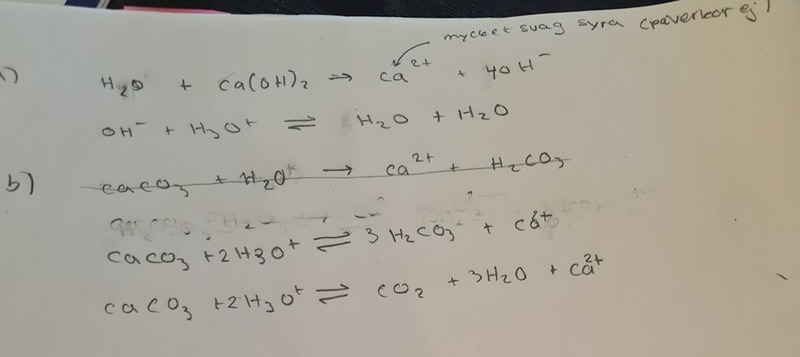 mycket svag syra (påverkar ej)
a) H₂O + ca(OH)₂ → ca²⁺ + 4OH⁻
OH⁻ + H₃O⁺ ⇌ H₂O + H₂O
b) caco₃ + H₂O⁺ → ca²⁺ + H₂CO₃
caco₃ + 2H3O⁺ ⇌ 3 H₂CO₃ +
caco₃ + 2H₃O⁺ ⇌ CO₂ + 3H₂O + ca²⁺